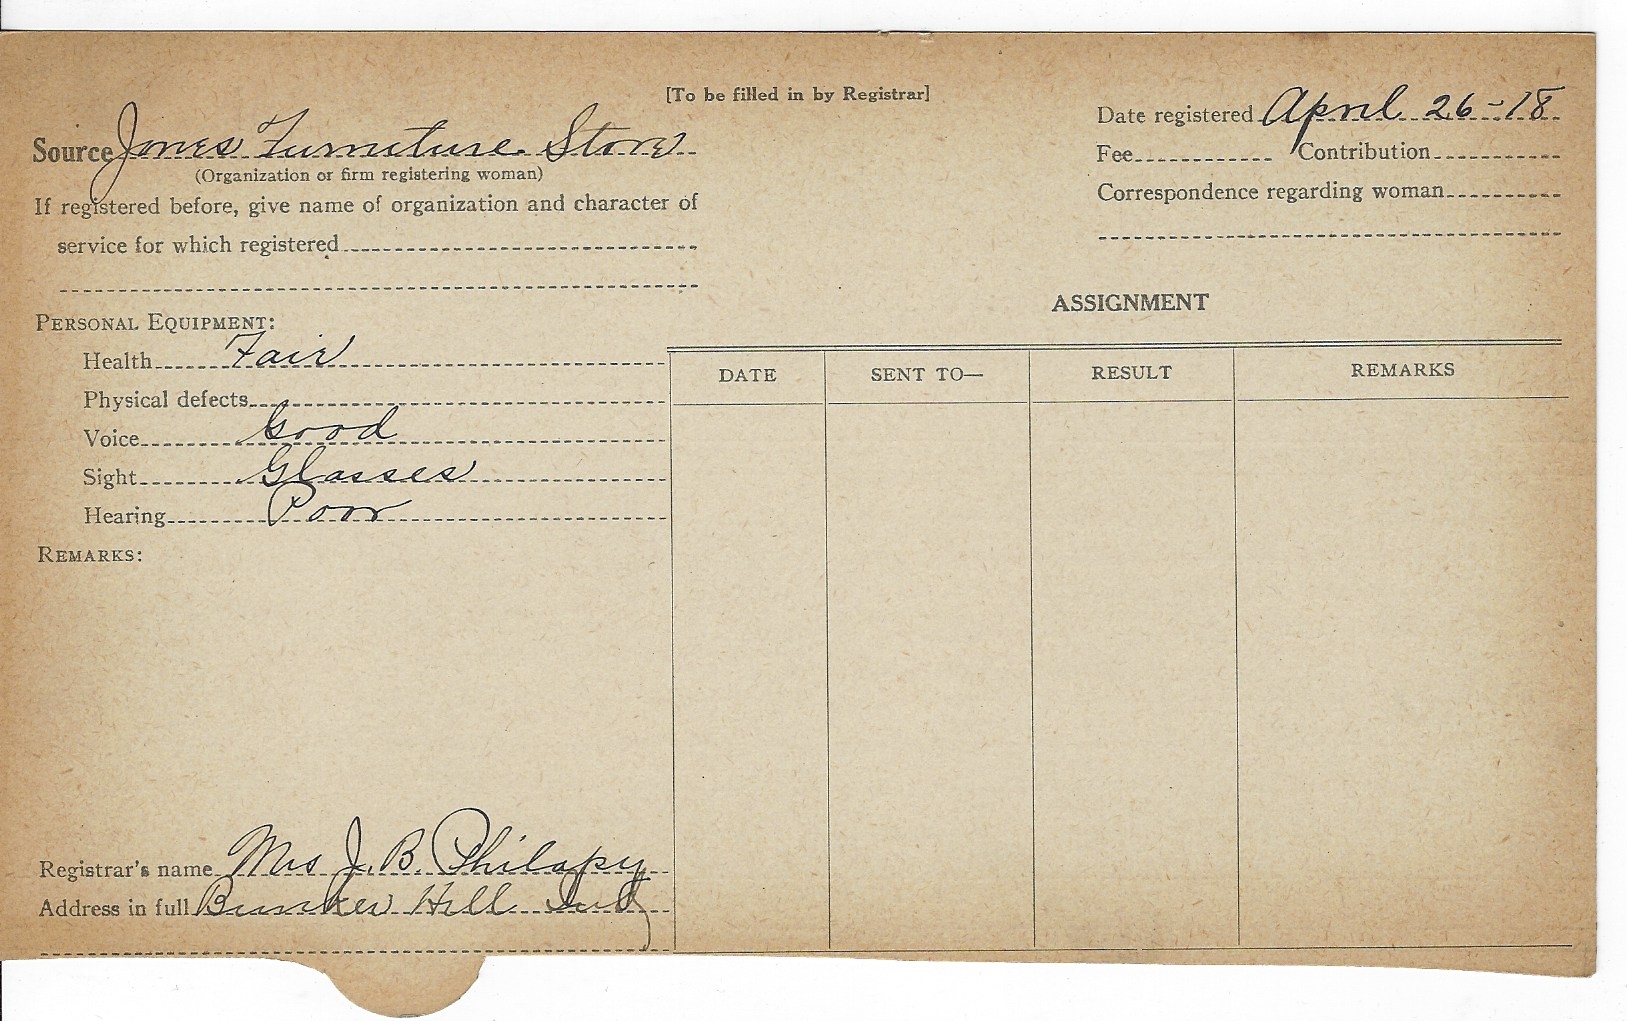 [To be filled in by Registrar]
Source Jones Furniture Store
(Organization or firm registering woman)
If registered before, give name of organization and character of
service for which registered
Date registered April 26-18
Fee Contribution
Correspondence regarding woman
PERSONAL EQUIPMENT:
Health Fair
Physical defects
Voice Good
Sight Glasses
Hearing Poor
REMARKS:
Registrar's name Mrs J. B. Philapy
Address in full Bunker Hill Ind
ASSIGNMENT
DATE SENT TO— RESULT REMARKS